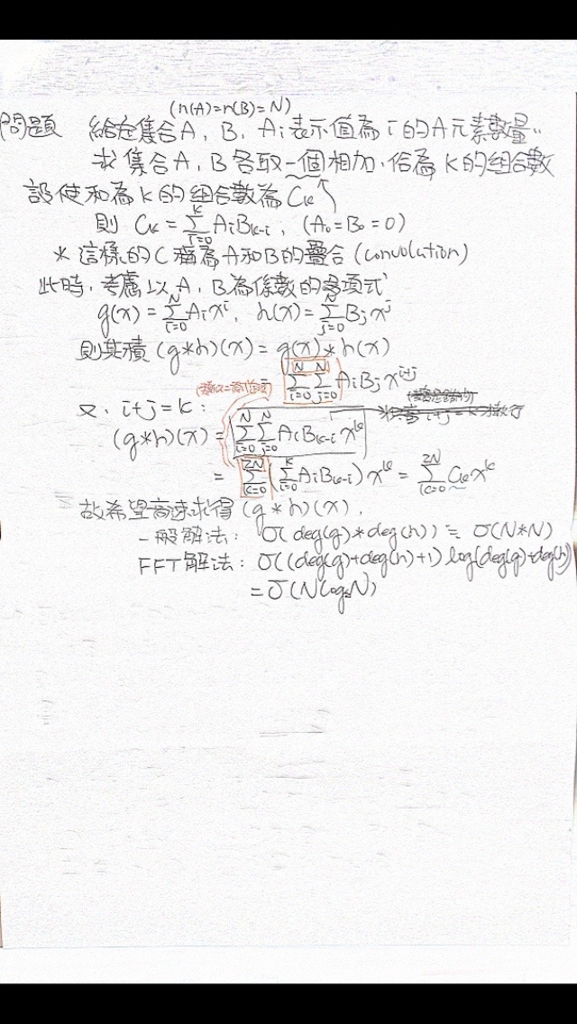 (n(A)=n(B)=N)
問題 給定集合A, B, Ai表示值為i的A元素數量..
求集合A, B各取一個相加,恰為K的組合數
設使和為k的組合數為Ck
則 Ck = Σ_{i=0}^{k} AiBk-i, (A0=B0=0)
* 這樣的C稱為A和B的疊合 (convolution)
此時,考慮以A, B為係數的多項式
g(x) = Σ_{i=0}^{N} Aix^i, h(x) = Σ_{j=0}^{N} Bjx^j
則其積 (g*h)(x) = g(x)*h(x)
Σ_{i=0}^{N} Σ_{j=0}^{N} AiBjx^{i+j}
又, i+j=k:
(g*h)(x) = Σ_{i=0}^{N} Σ_{j=0}^{N} AiBk-i x^k
= Σ_{k=0}^{2N} (Σ_{i=0}^{k} AiBk-i) x^k = Σ_{k=0}^{2N} Ckx^k
故希望高速求得 (g*h)(x).
一般解法: O(deg(g)*deg(h)) = O(N*N)
FFT解法: O((deg(g)+deg(h)+1) log(deg(g)+deg(h)
= O(N log2N)